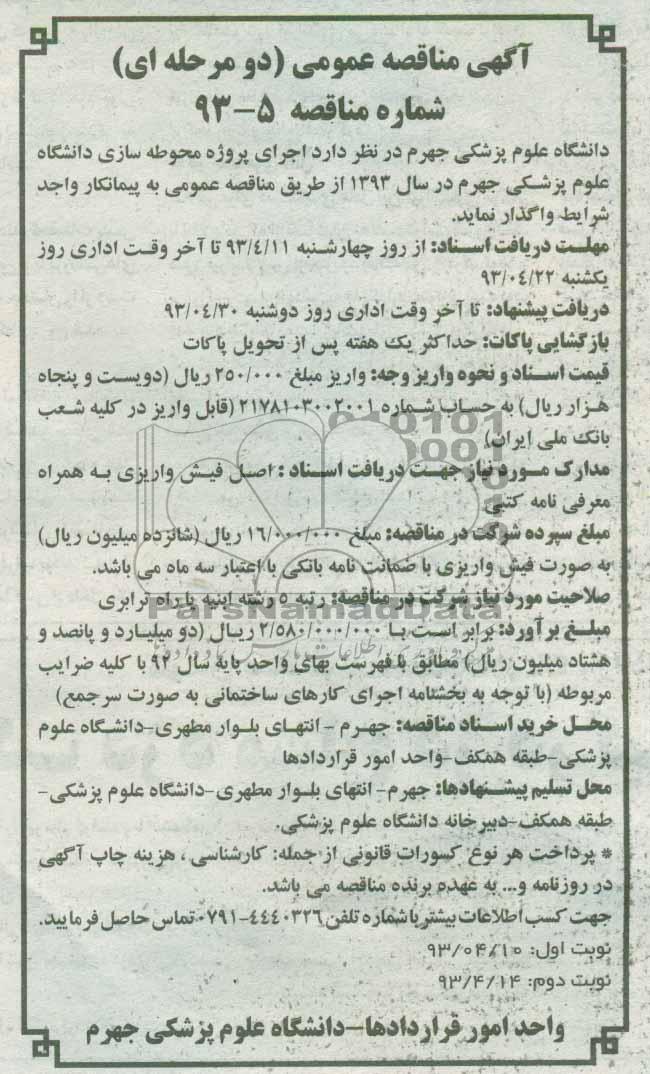 آگهی مناقصه عمومی (دو مرحله ای)
شماره مناقصه ۵-۹۳
دانشگاه علوم پزشکی جهرم در نظر دارد اجرای پروژه محوطه سازی دانشگاه
علوم پزشکی جهرم در سال ۱۳۹۳ از طریق مناقصه عمومی به پیمانکار واجد
شرایط واگذار نماید.
مهلت دریافت اسناد: از روز چهارشنبه ۹۳/۴/۱۱ تا آخر وقت اداری روز
یکشنبه ۹۳/۰۴/۲۲
دریافت پیشنهاد: تا آخر وقت اداری روز دوشنبه ۹۳/۰۴/۳۰
بازگشایی پاکات: حداکثر یک هفته پس از تحویل پاکات
قیمت اسناد و نحوه واریز وجه: واریز مبلغ ۲۵۰/۰۰۰ ریال (دویست و پنجاه
هزار ریال) به حساب شماره ۲۱۷۸۱۰۳۰۰۲۰۰۱ (قابل واریز در کلیه شعب
بانک ملی ایران)
مدارک مورد نیاز جهت دریافت اسناد : اصل فیش واریزی به همراه
معرفی نامه کتبی
مبلغ سپرده شرکت در مناقصه: مبلغ ۱۶/۰۰۰/۰۰۰ ریال (شانزده میلیون ریال)
به صورت فیش واریزی یا ضمانت نامه بانکی با اعتبار سه ماه می باشد.
صلاحیت مورد نیاز شرکت در مناقصه: رتبه ۵ رشته ابنیه یا راه ترابری
ParsNamadData
مبلغ برآورد: برابر است با ۲/۵۸۰/۰۰۰/۰۰۰ ریال (دو میلیارد و پانصد و
هشتاد میلیون ریال) مطابق با فهرست بهای واحد پایه سال ۹۲ با کلیه ضرایب
مربوطه (با توجه به بخشنامه اجرای کارهای ساختمانی به صورت سرجمع)
محل خرید اسناد مناقصه: جهرم - انتهای بلوار مطهری-دانشگاه علوم
پزشکی-طبقه همکف-واحد امور قراردادها
محل تسلیم پیشنهادها: جهرم- انتهای بلوار مطهری-دانشگاه علوم پزشکی-
طبقه همکف-دبیرخانه دانشگاه علوم پزشکی.
* پرداخت هر نوع کسورات قانونی از جمله: کارشناسی ، هزینه چاپ آگهی
در روزنامه و... به عهده برنده مناقصه می باشد.
جهت کسب اطلاعات بیشتر با شماره تلفن ۴۴۴۰۳۲۶-۰۷۹۱ تماس حاصل فرمایید.
نوبت اول: ۹۳/۰۴/۱۰
نوبت دوم: ۹۳/۴/۱۴
واحد امور قراردادها-دانشگاه علوم پزشکی جهرم